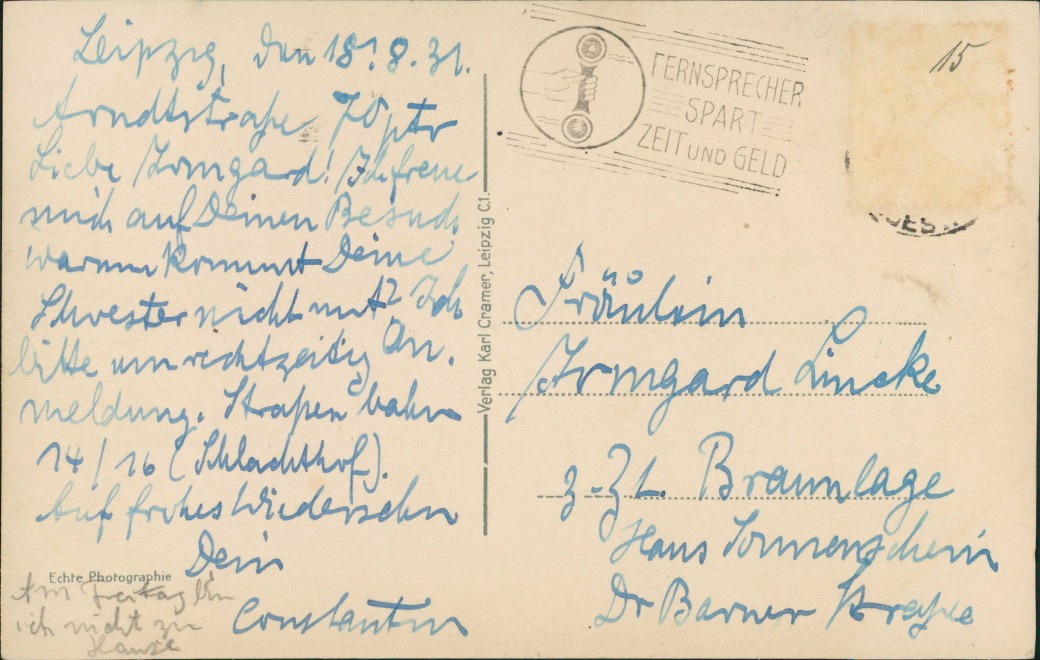 Leipzig, den 18. 8. 31.
Arndtstraße 70 ptr
Liebe Irmgard! Ich freue
mich auf Deinen Besuch
warum kommt Deine
Schwester nicht mit? Ich
bitte um rechtzeitig An-
meldung. Straßenbahn
14/16 (Schlachthof).
Auf frohes Wiedersehn
Dein
Constantin
Am Freitag bin
ich nicht zu
Hause
Echte Photographie
Verlag Karl Cramer, Leipzig C1.
FERNSPRECHER
SPART
ZEIT UND GELD
15
Fräulein
Irmgard Lincke
z. Zt. Braunlage
Haus Sonnenschein
Dr Barner Straße